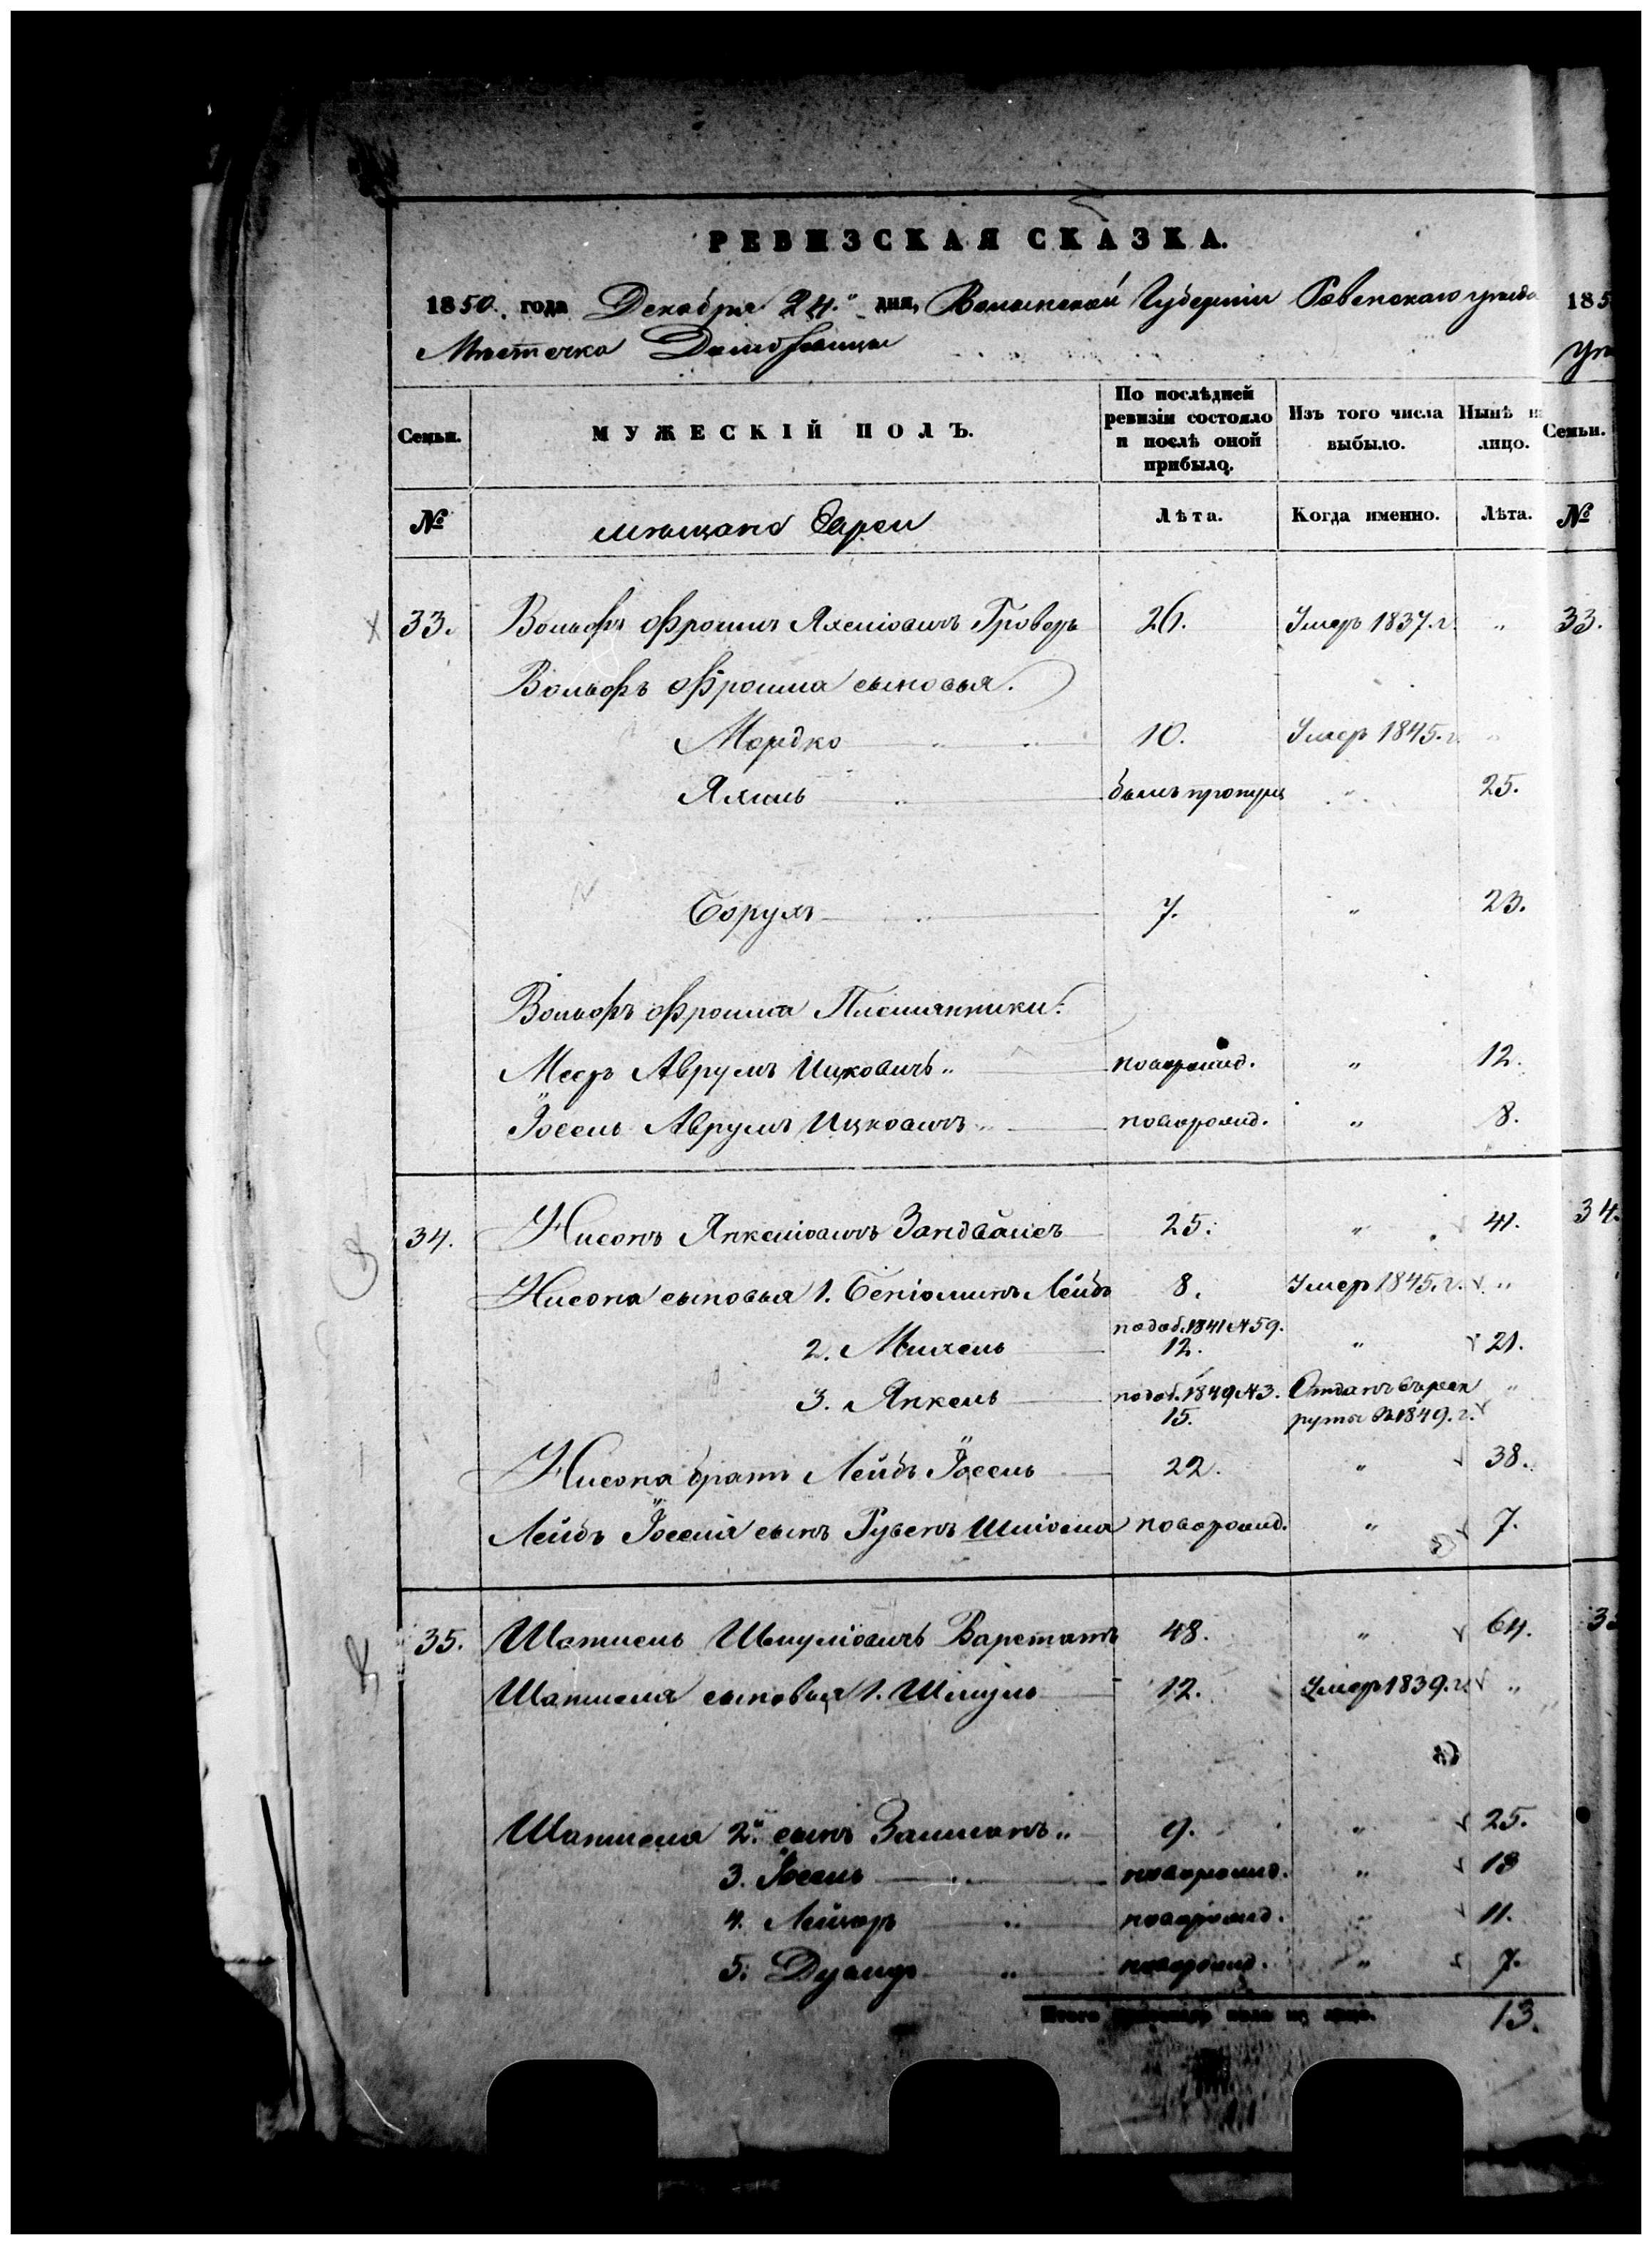 РЕВИЗСКАЯ СКАЗКА.
1850. года Декабря 24." дня, Волынской Губерніи Ровенскаго уезда
Мѣстечка Домбровицы
Семьи.
МУЖЕСКІЙ ПОЛЪ.
По послѣдней ревизіи состояло и послѣ оной прибыло.
Изъ того числа выбыло.
Нынѣ н лицо.
№
мѣщане Евреи
Лѣта.
Когда именно.
Лѣта.
33. Вольфъ Фроимъ Яхеліовичъ Гроверъ 26. Умеръ 1837.г. "
Вольфъ Фроима сыновья.
Мордко " " 10. Умеръ 1845.г. "
Яхиль " былъ пропущ " 25.
Борухъ " 7. " 23.
Вольфъ Фроима Племянники:
Мееръ Аврумъ Ицковичъ " новорожд. " 12.
Іосель Аврумъ Ицковичъ " новорожд. " 8.
34. Нисонъ Янкеліовичъ Зандвайсъ 25. " 41.
Нисона сыновья 1. Беніоминъ Лейбъ 8. Умеръ 1845.г. "
2. Михель по доб. 1841 № 59. 12. " 21.
3. Янкель по доб. 1849 № 3. 15. Отданъ въ рек руты въ 1849.г. "
Нисона братъ Лейбъ Іосель 22. " 38.
Лейбъ Іоселя сынъ Рувенъ Шліома новорожд. " 7.
35. Шатшель Шмуліовичъ Варстатъ 48. " 64.
Шатшеля сыновья 1. Шмуль 12. Умеръ 1839.г. "
Шатшеля 2й сынъ Залманъ " 9. " 25.
3. Іосель " новорожд. " 18
4. Лейзоръ " новорожд. " 11.
5. " новорожд. " 7.
Итого мужескаго пола на лицо. 13.
185
Семьи.
№
33.
34.